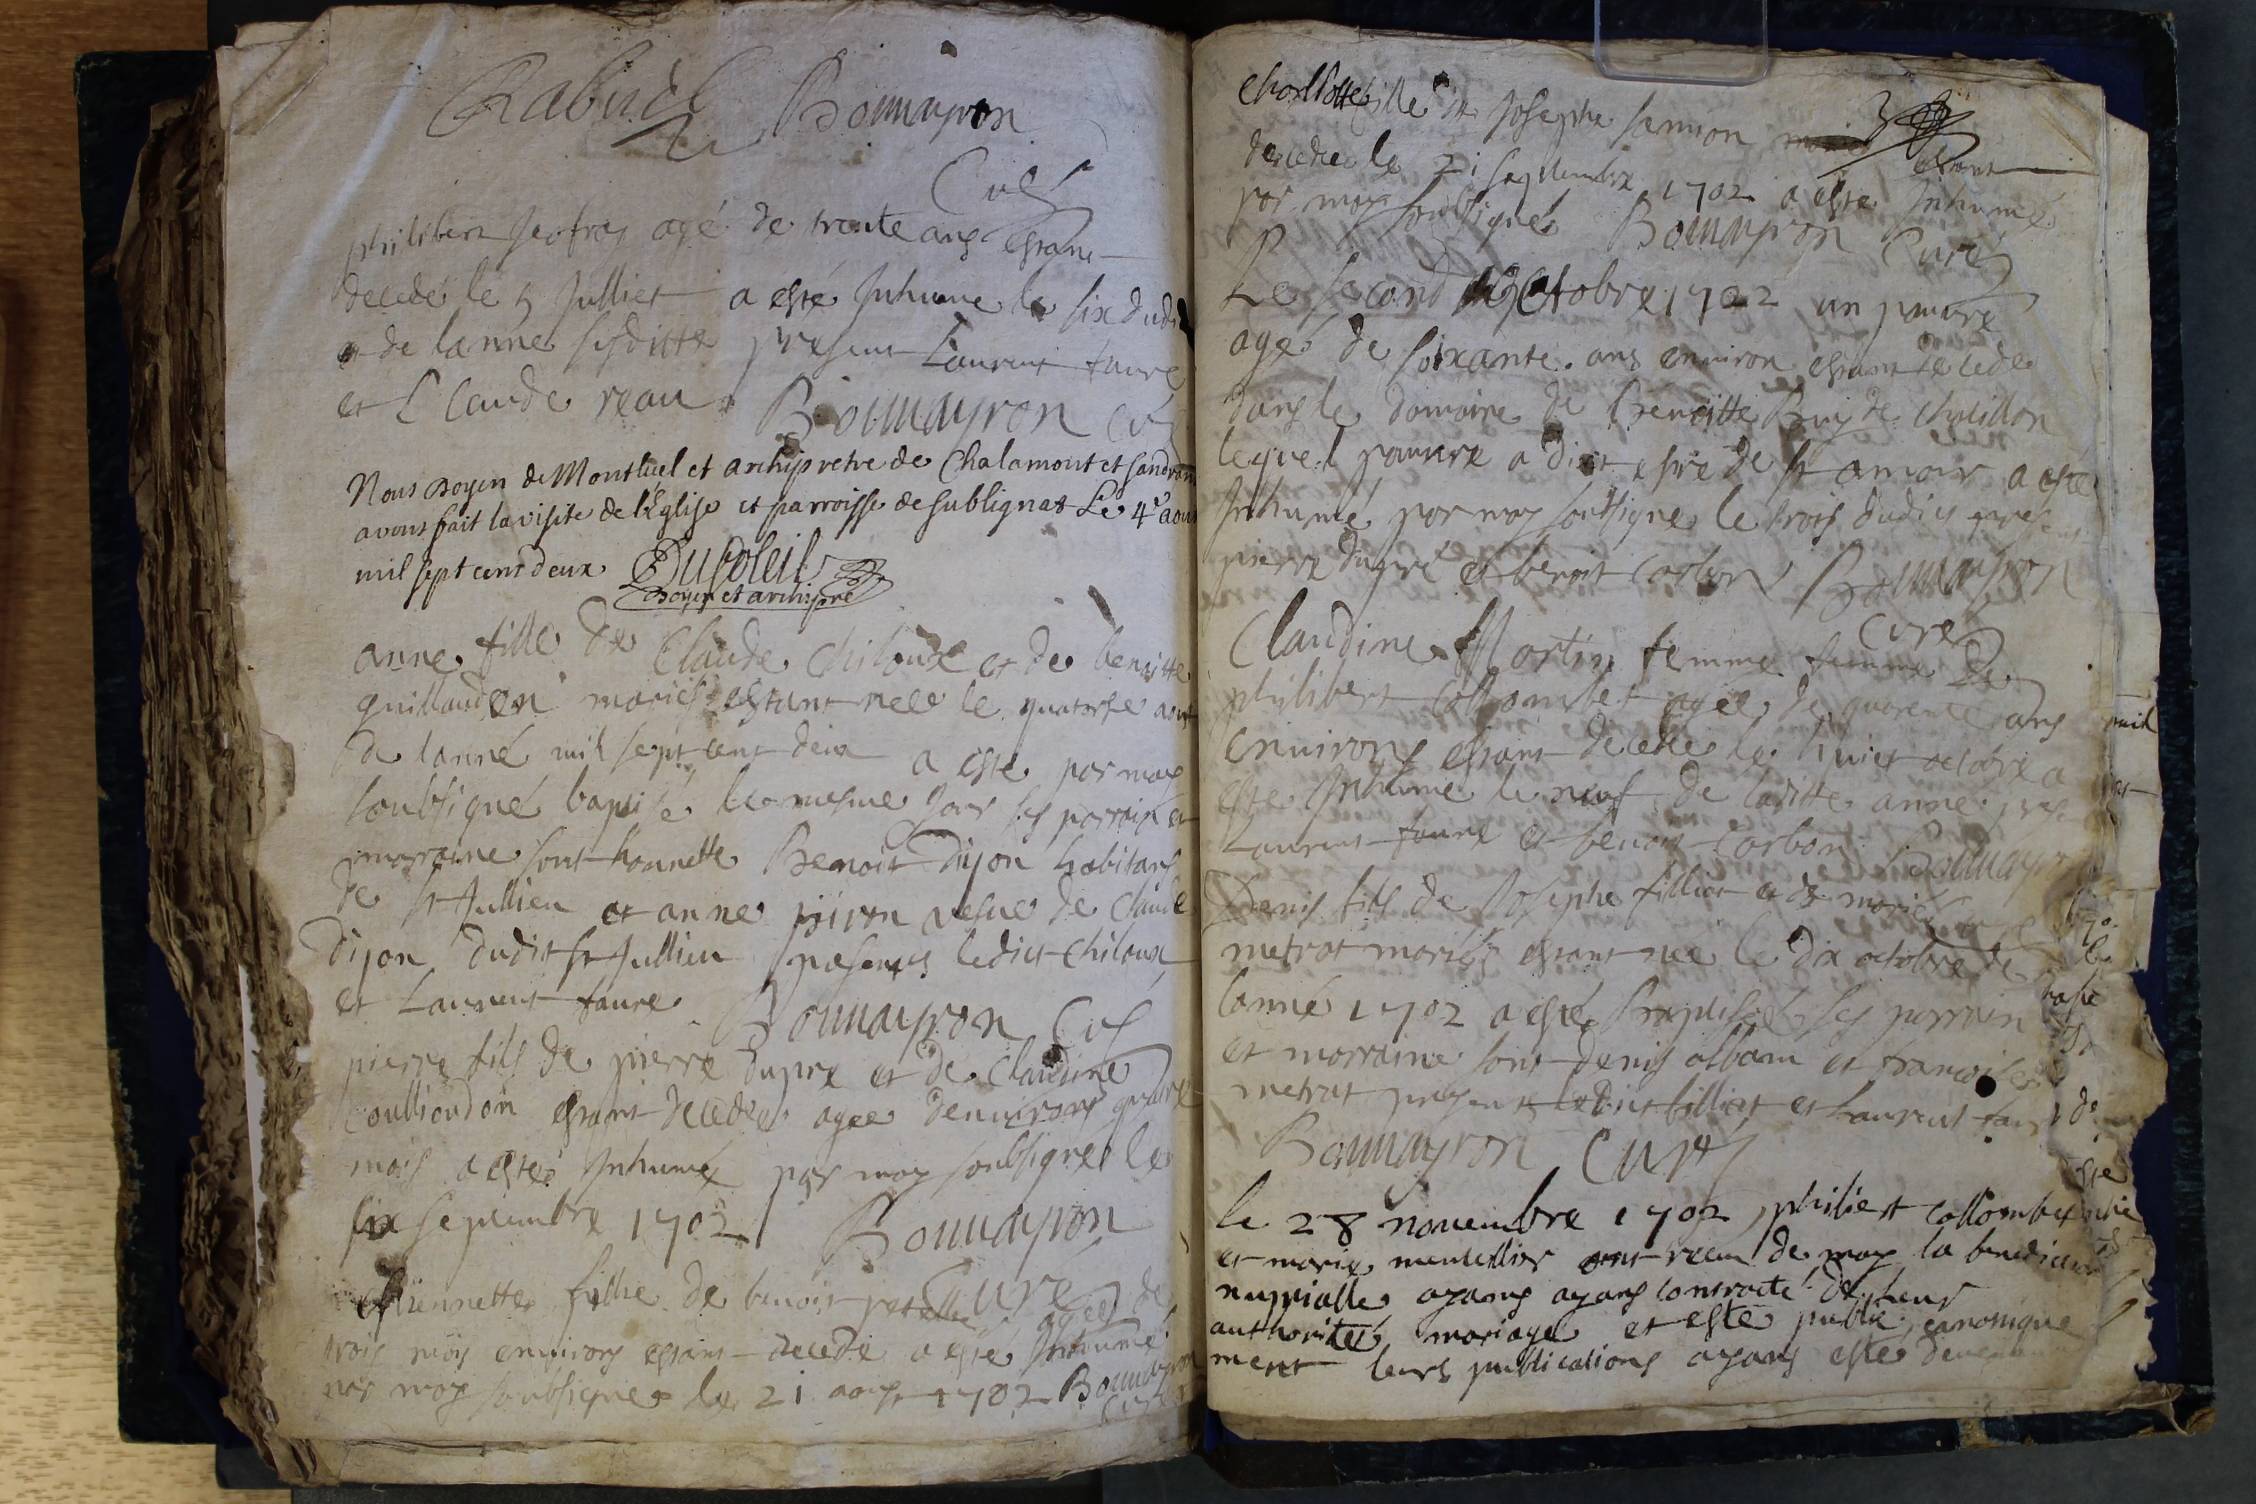 Rabuel Boumayron
Curé
philibert Jeofray agé de trente ans estant
decedé le 5 Julliet a esté Inhume le six dudit
et de lanne susditte present Laurent faure
et Claude reau Boumayron Curé
Nous Doyen de Montluel et archipretre de Chalamont et sandrans
avons fait la visite de l'Eglise et parroisse de sublignat Le 4e aout
mil sept cent deux Dusoleil
Doyen et archipre
anne fille de Claude Chiloux et de benoitte
guillaudon mariés estant nee le quatorse aout
de lanné mil sept cent deux a esté par moy
soubsigné baptisé le mesme Jour ses parrain et
marraine sont honnette Benoit Dijon habitant
de St Jullien et anne piron vesue de Claude
Dijon dudit St Jullien presents ledict Chiloux
et Laurent faure Boumayron Curé
pierre fils de pierre dupre et de Claudine
estant decedé agee denvirons quatre
mois a esté Inhumé par moy soubsigné le
six septembre 1702 Boumayron
Curé
fillie de benoit agée de
trois mois environs estant decede a esté Inhumé
par moy soubsigné le 21 aoust 1702 Boumayron
Curé
Charllotte fille de Josephe
estant
decedee le 21 septembre 1702 a esté Inhumé
par moy soubsigné Boumayron Curé
Le second octobre 1702 un pauvre
agé de soixante ans environ estant decede
dans le domaine de benoitte de Chatillon
lequel pauvre a dict estre de St amour a esté
Inhumé par moy soubsigne le trois dudict pres
pierre dupré et benoit Corbon Boumayron
Curé
Claudine Martin femme femme de
philibert Collombet agée de quarente ans
environs estant decedee le huict octobre a
esté Inhume le neuf de laditte anne pres
Laurent faure et benoit Corbon Boumayron
Denis fils de Josephe filliat et de
metrat mariés estant né le dix octobre de
lanné 1702 a esté baptisé ses parrain
et marraine sont denis alban et francoise
metrat presents ledict filliat et Laurent faure
Boumayron Curé
le 28 novembre 1702 philibert Collombet
et marie ont receu de moy la benediction
nuptialle ayans ayans contracté de leur
authorité mariage et esté publié canonique
ment leurs publications ayans esté